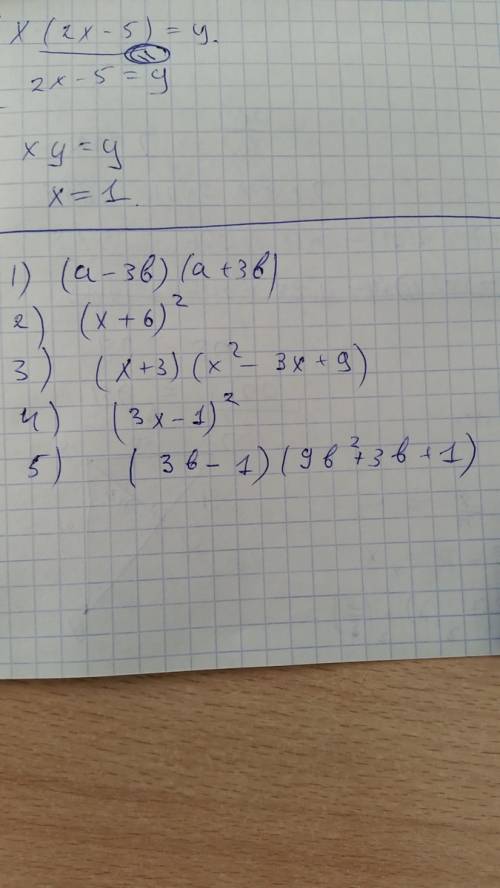 x (2x - 5) = y.
2x - 5 = y
xy = y
x = 1.
1) (a - 3b)(a + 3b)
2) (x + 6)²
3) (x + 3)(x² - 3x + 9)
4) (3x - 1)²
5) (3b - 1)(9b² + 3b + 1)